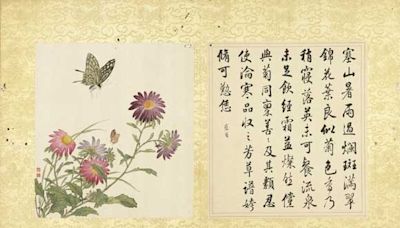 塞山暑雨過爛斑滿翠
錦花葉良似菊色香乃
稍寢落英未可餐流泉
未足飲經霜益燦然
與菊同稟善善及其類忍
使淪寒品收之芳草譜姱
脩可恁